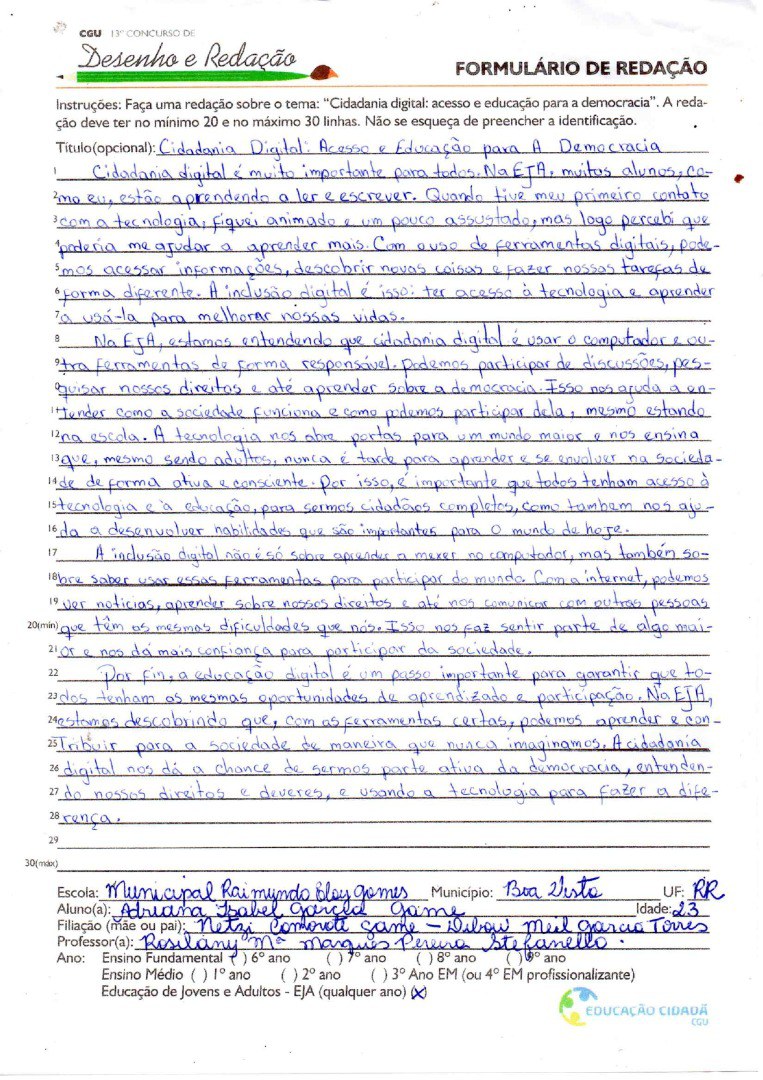 CGU 13º CONCURSO DE
Desenho e Redação
FORMULÁRIO DE REDAÇÃO
Instruções: Faça uma redação sobre o tema: “Cidadania digital: acesso e educação para a democracia”. A reda-
ção deve ter no mínimo 20 e no máximo 30 linhas. Não se esqueça de preencher a identificação.
Título(opcional): Cidadania Digital: Acesso e Educação para A Democracia
1 Cidadania digital é muito importante para todos. Na EJA, muitos alunos, co-
2 mo eu, estão aprendendo a ler e escrever. Quando tive meu primeiro contato
3 com a tecnologia, fiquei animado e um pouco assustado, mas logo percebi que
4 poderia me ajudar a aprender mais. Com o uso de ferramentas digitais, pode-
5 mos acessar informações, descobrir novas coisas e fazer nossos tarefas de
6 forma diferente. A inclusão digital é isso: ter acesso à tecnologia e aprender
7 a usá-la para melhorar nossas vidas.
8 Na EJA, estamos entendendo que cidadania digital é usar o computador e ou-
9 tra ferramentas de forma responsável. Podemos participar de discussões, pes-
0 quisar nossos direitos e até aprender sobre a democracia. Isso nos ajuda a en-
11 tender como a sociedade funciona e como podemos participar dela, mesmo estando
12 na escola. A tecnologia nos abre portas para um mundo maior e nos ensina
13 que, mesmo sendo adultos, nunca é tarde para aprender e se envolver na socieda-
14 de de forma ativa e consciente. Por isso, é importante que todos tenham acesso à
15 tecnologia e à educação, para sermos cidadãos completos, como tambem nos aju-
16 da a desenvolver habilidades que são importantes para o mundo de hoje.
17 A inclusão digital não é só sobre aprender a mexer no computador, mas também so-
18 bre saber usar essas ferramentas para participar do mundo. Com a internet, podemos
19 ver notícias, aprender sobre nossos direitos e até nos comunicar com outras pessoas
20(mín) que têm as mesmas dificuldades que nós. Isso nos faz sentir parte de algo mai-
21 or e nos dá mais confiança para participar da sociedade.
22 Por fin, a educação digital é um passo importante para garantir que to-
23 dos tenham as mesmas oportunidades de aprendizado e participação. Na EJA,
24 estamos descobrindo que, com as ferramentas certas, podemos aprender e con-
25 Tribuir para a sociedade de maneira que nunca imaginamos. A cidadania
26 digital nos dá a chance de sermos parte ativa da democracia, entenden-
27 do nossos direitos e deveres, e usando a tecnologia para fazer a dife-
28 rença.
29
30(máx)
Escola: Municipal Raimundo Eloy Gomes Município: Boa Vista UF: RR
Aluno(a): Adriana Isabel García Game Idade: 23
Filiação (mãe ou pai): Netzi Comorote Game - Meil Garcia Torres
Professor(a): Rosilany Mª Marques Pereira Stefanello.
Ano: Ensino Fundamental ( ) 6º ano ( ) 7º ano ( ) 8º ano ( ) 9º ano
Ensino Médio ( ) 1º ano ( ) 2º ano ( ) 3º Ano EM (ou 4º EM profissionalizante)
Educação de Jovens e Adultos - EJA (qualquer ano) (x)
EDUCAÇÃO CIDADÃ
CGU